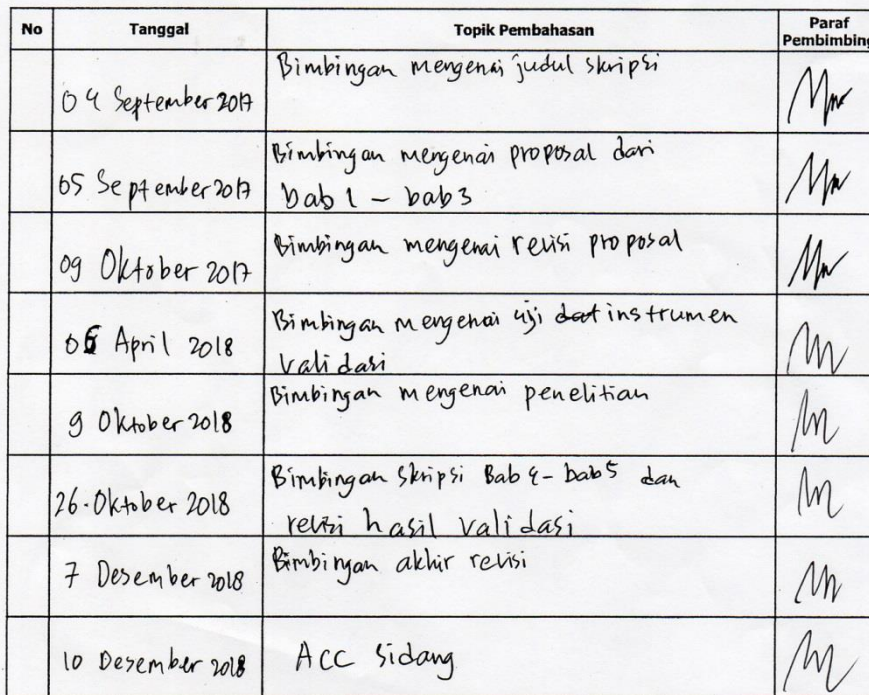 No Tanggal Topik Pembahasan Paraf Pembimbing
04 September 2017 Bimbingan mengenai judul skripsi
05 September 2017 Bimbingan mengenai proposal dari
bab 1 - bab 3
09 Oktober 2017 Bimbingan mengenai revisi proposal
06 April 2018 Bimbingan mengenai uji dat instrumen
validasi
9 Oktober 2018 Bimbingan mengenai penelitian
26. Oktober 2018 Bimbingan skripsi Bab 4 - bab 5 dan
revisi hasil validasi
7 Desember 2018 Bimbingan akhir revisi
10 Desember 2018 ACC Sidang